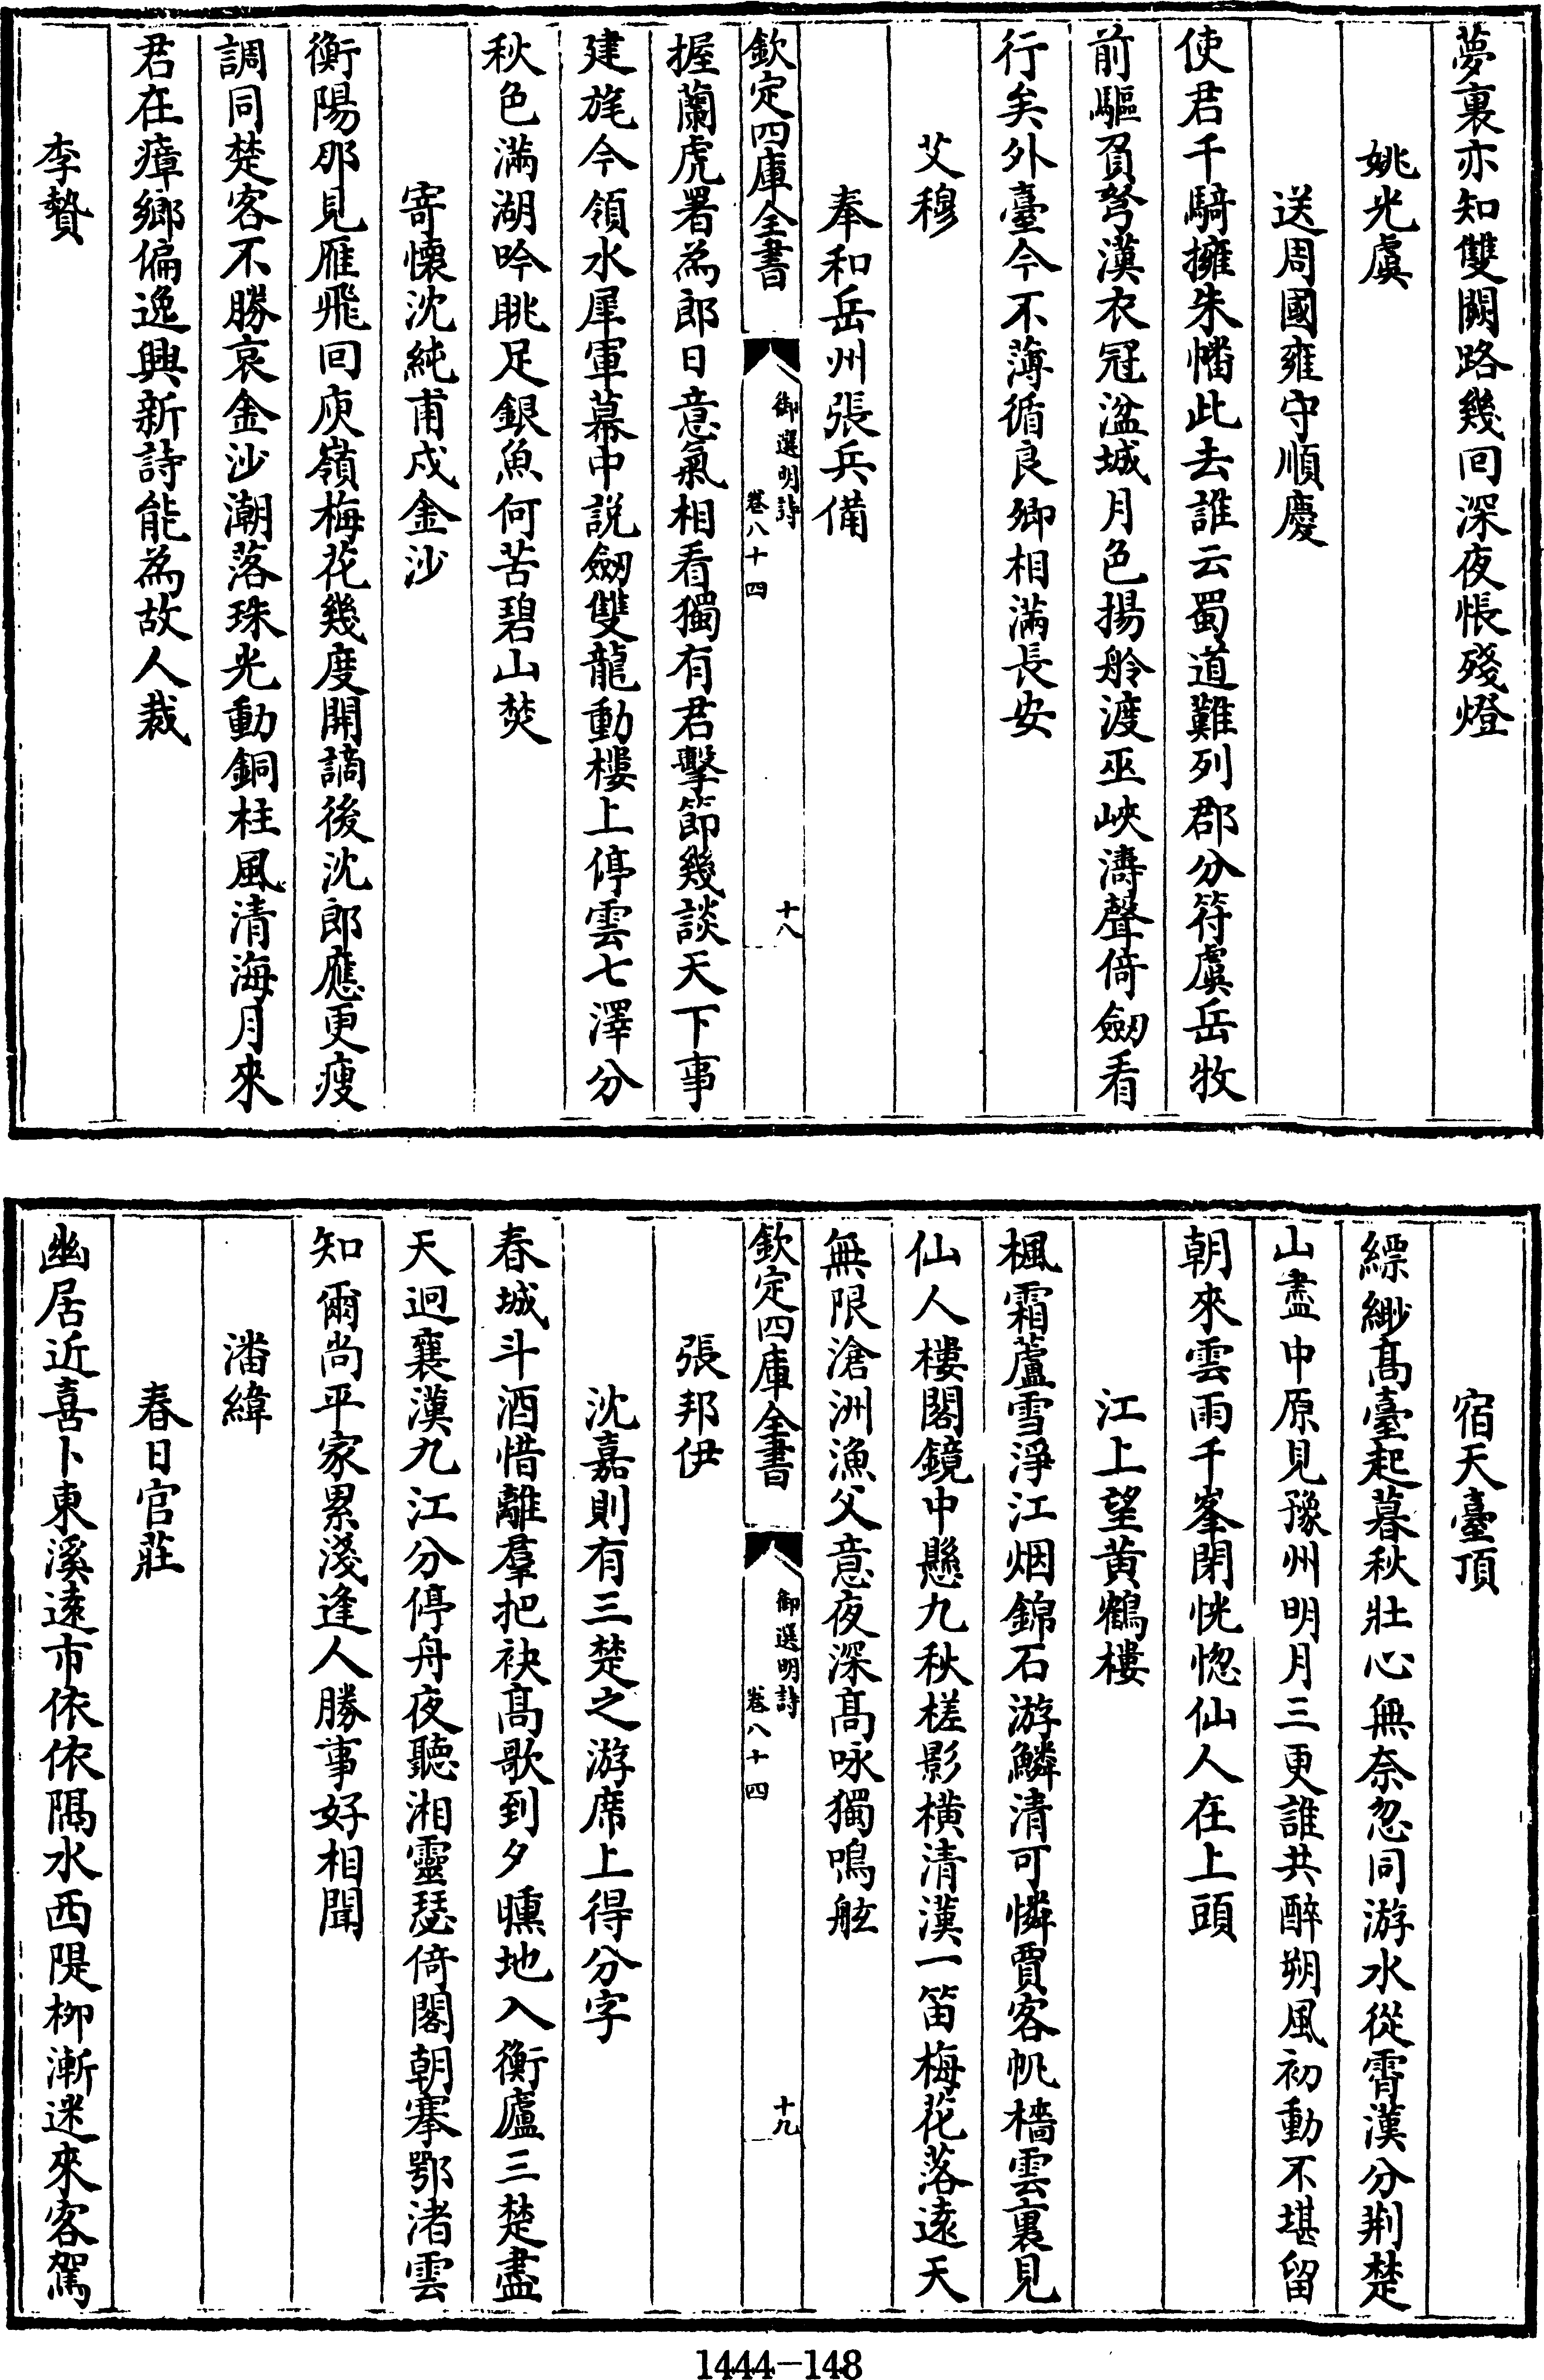 夢裏亦知雙闕路幾回深夜悵殘燈
姚光虞
送周國雍守順慶
使君千騎擁朱幡此去誰云蜀道難列郡分符虞岳牧
前驅負弩漢衣冠湓城月色揚舲渡巫峽濤聲倚劒看
行矣外臺今不薄循良卿相滿長安
艾穆
奉和岳州張兵備
欽定四庫全書
御選明詩
卷八十四
十八
握蘭虎署為郎日意氣相看獨有君擊節幾談天下事
建旄今領水犀軍幕中説劒雙龍動樓上停雲七澤分
秋色滿湖吟眺足銀魚何苦碧山焚
寄懷沈純甫戍金沙
衡陽那見雁飛回庾嶺梅花幾度開謫後沈郎應更瘦
調同楚客不勝哀金沙潮落珠光動銅柱風清海月來
君在瘴鄉偏逸興新詩能為故人裁
李贄
宿天臺頂
縹緲髙臺起暮秋壯心無奈忽同游水從霄漢分荆楚
山盡中原見豫州明月三更誰共醉朔風初動不堪留
朝來雲雨千峯閉恍惚仙人在上頭
江上望黄鶴樓
楓霜蘆雪淨江烟錦石游鱗清可憐賈客帆檣雲裏見
仙人樓閣鏡中懸九秋槎影横清漢一笛梅花落遠天
無限滄洲漁父意夜深髙咏獨鳴舷
欽定四庫全書
御選明詩
卷八十四
十九
張邦伊
沈嘉則有三楚之游席上得分字
春城斗酒惜離羣把袂髙歌到夕曛地入衡廬三楚盡
天迥襄漢九江分停舟夜聽湘靈瑟倚閣朝搴鄂渚雲
知爾尚平家累淺逢人勝事好相聞
潘緯
春日官莊
幽居近喜卜東溪遠市依依隔水西隄柳漸迷來客駕
1444-148